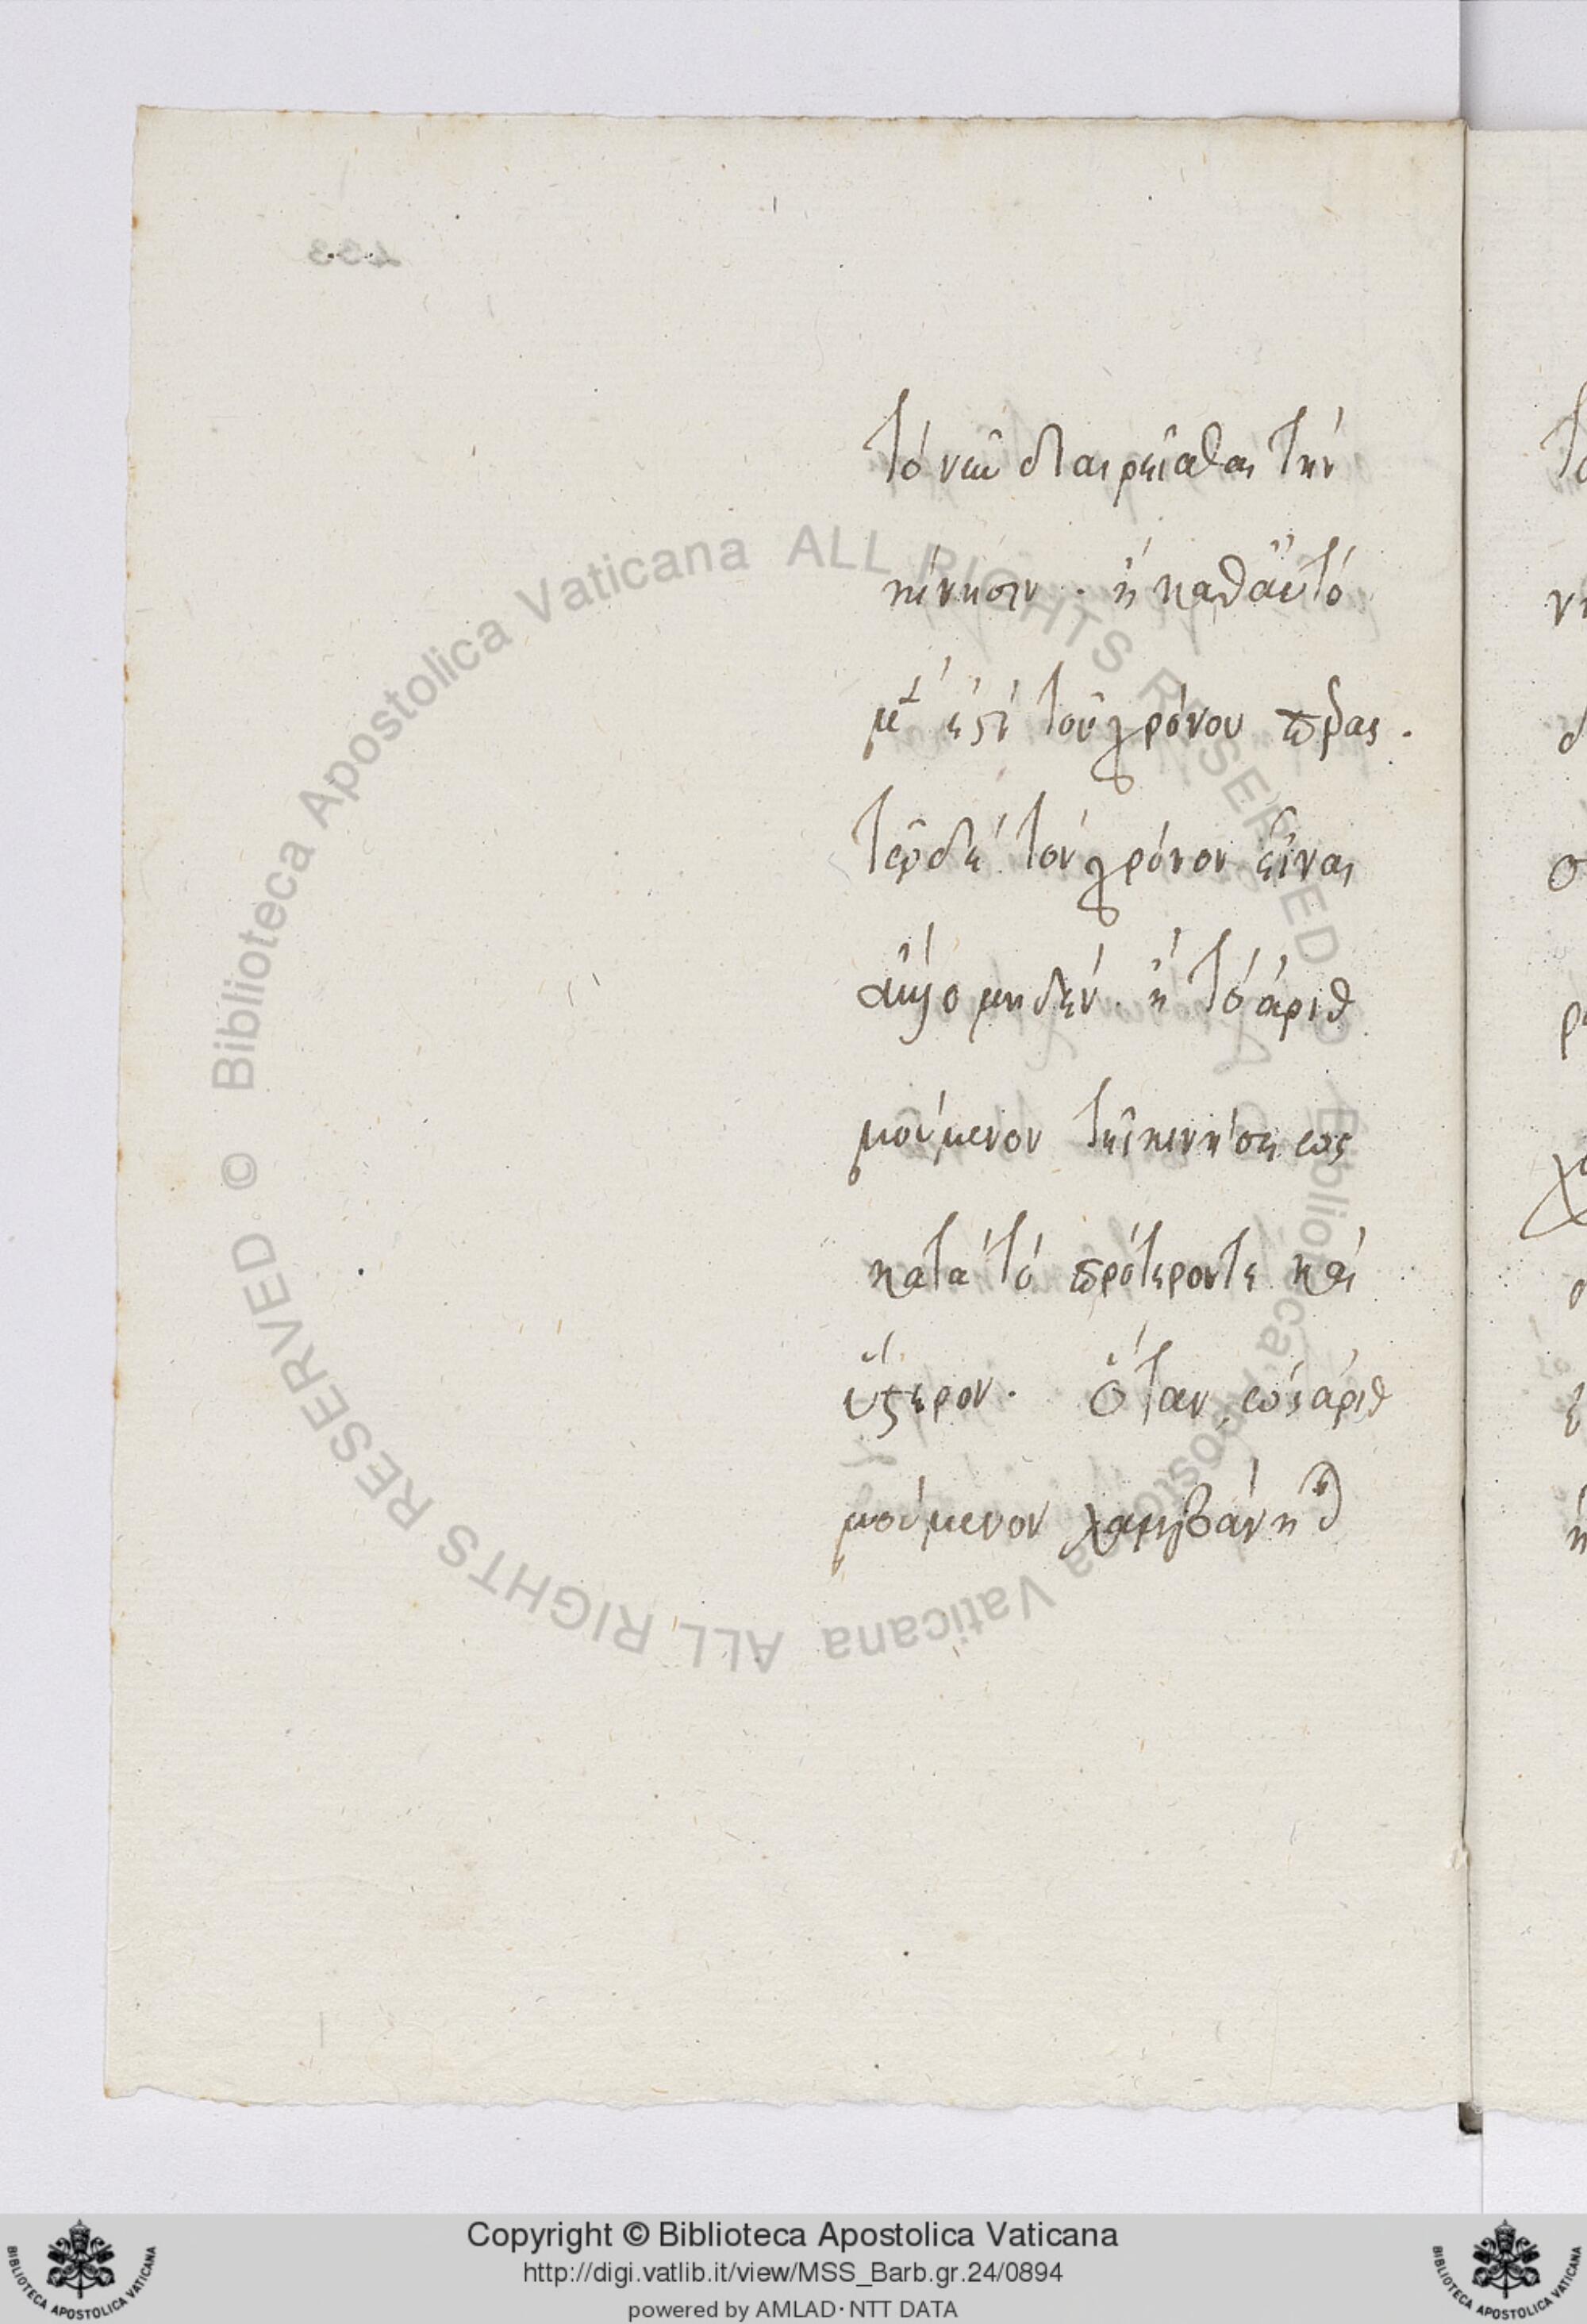 433
τὸ νῦν διαιρεῖσθαι τὴν
κίνησιν. ἢ καθ' αὑτὸ
ἐστὶ τοῦ χρόνου πέρας.
τῶδε τὸν χρόνον εἶναι
μηδὲν. ἢ τὸ ἀριθ
μούμενον τῆς κινήσεως
κατὰ τὸ πρότερόν τε καὶ
ὕστερον. ὅταν ὡς ἀριθ
μούμενον λαμβάνηται
Biblioteca Apostolica Vaticana ALL RIGHTS RESERVED ©
Biblioteca Apostolica Vaticana ALL RIGHTS RESERVED ©
Copyright © Biblioteca Apostolica Vaticana
http://digi.vatlib.it/view/MSS_Barb.gr.24/0894
powered by AMLAD·NTT DATA
BIBLIOTECA APOSTOLICA VATICANA
BIBLIOTECA APOSTOLICA VATICANA